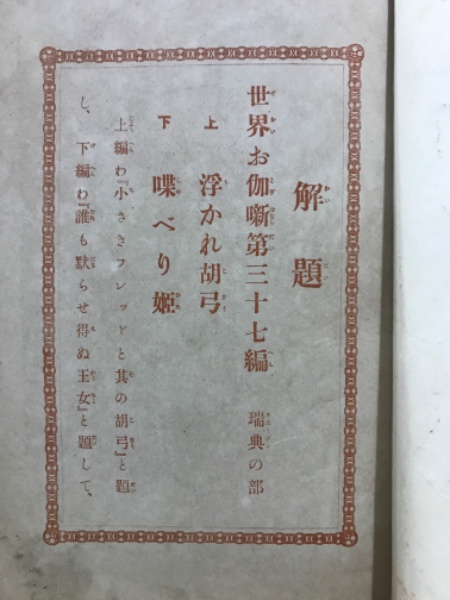 解題
世界お伽噺第三十七編 瑞典の部
上 浮かれ胡弓
下 喋べり姫
上編わ『小さきフレッドと其の胡弓』と題
し、下編わ『誰も黙らせ得ぬ王女』と題して、